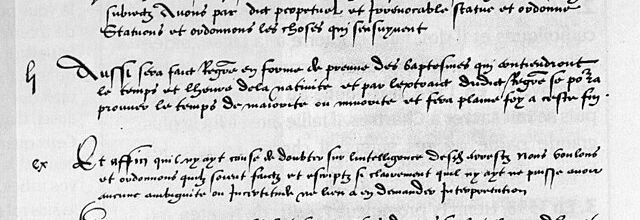 subiectz Avons par dict perpetuel et Irrevocable statue et ordonne
Statuons et ordonnons les choses qui sensuyvent
lj Aussi sera faict Regre en forme de preuve des baptesmes qui contiendront
le temps et lheure dela nativite et par lextraict dudict Regre se pora
prouver le temps de maiorite ou minorite et sera plaine foy a ceste fin
cx Et affin quil ny ayt cause de doubter sur lintelligence desd arrestz Nous voulons
et ordonnons quilz soient faictz et escriptz si clairement quil ny ayt ne puisse avoir
aucune ambiguite ou Incertitude ne lieu a en demander Interpretation